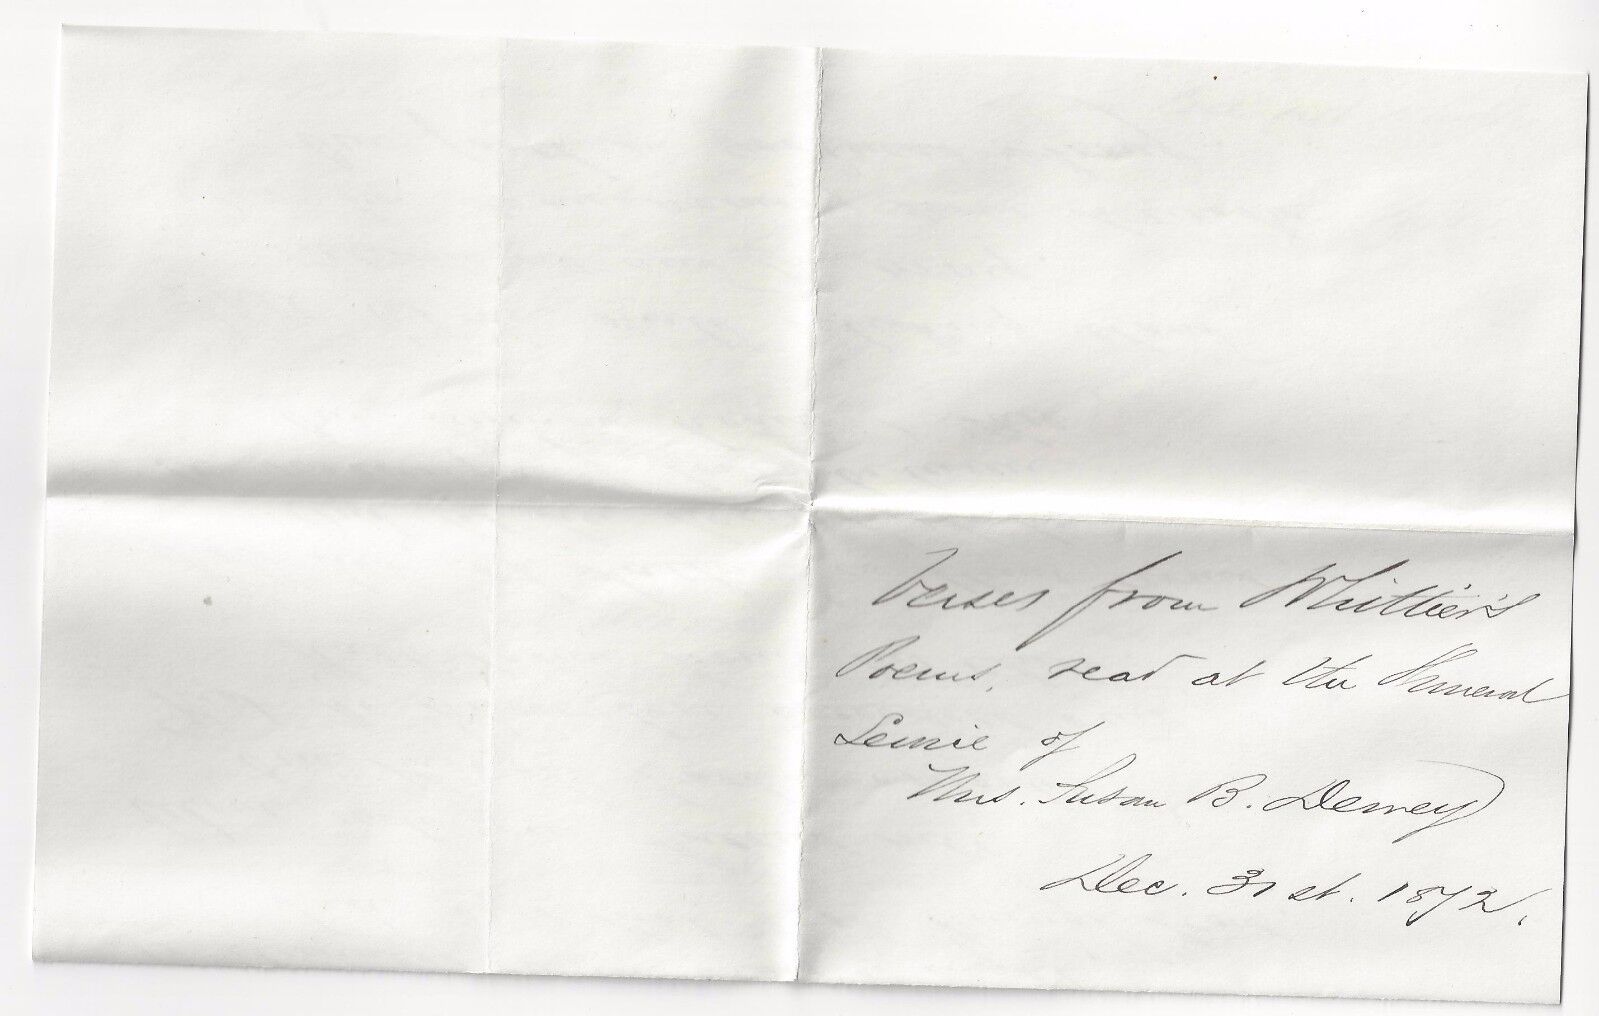 Verses from Whittier's
Poems, read at the Funeral
Service of
Mrs. Susan B. Dewey
Dec. 31st. 1872.